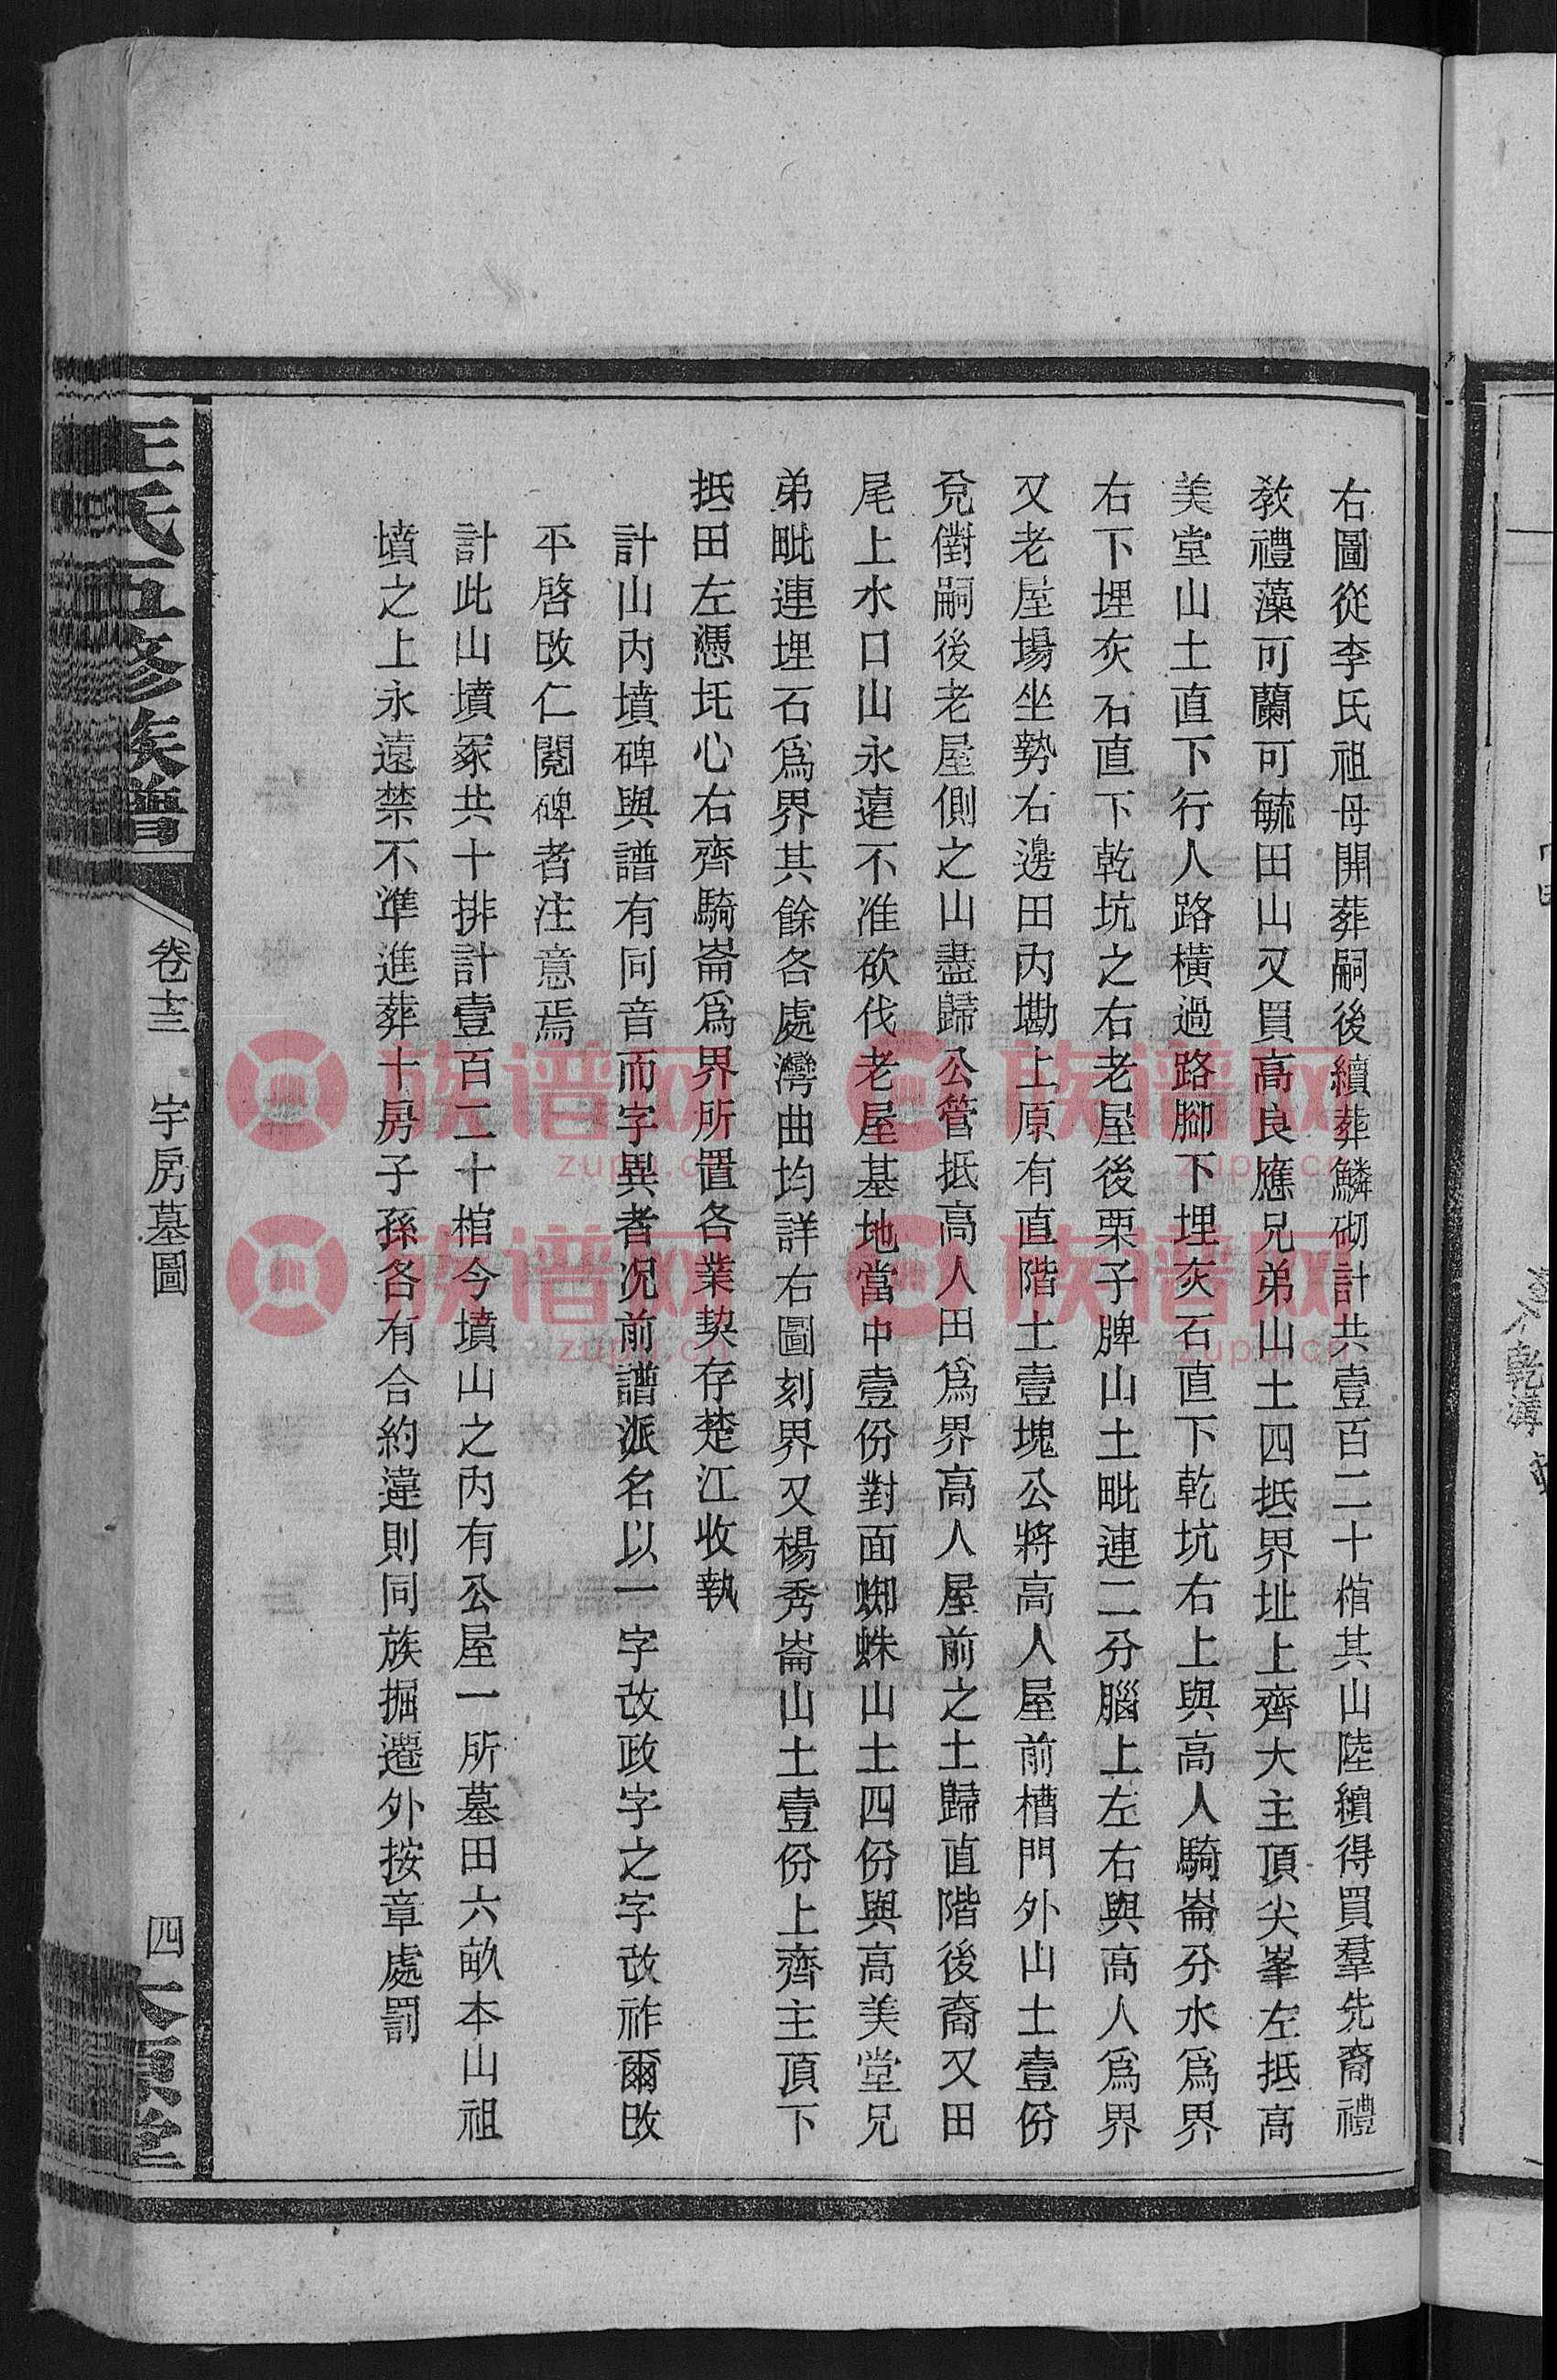 右圖從李氏祖母開葬嗣後續葬鱗砌計共壹百二十棺其山陸續得買羣先裔禮
敎禮藻可蘭可毓田山又買高良應兄弟山土四抵界址上齊大主頂尖峯左抵高
美堂山土直下行人路橫過路腳下埋灰石直下乾坑右上與高人騎崙分水爲界
右下埋灰石直下乾坑之右老屋後栗子脾山土毗連二分腦上左右與高人爲界
又老屋場坐勢右邊田內墈上原有直階土壹塊公將高人屋前槽門外山土壹份
兌儅嗣後老屋側之山盡歸公管抵高人田爲界高人屋前之土歸直階後裔又田
尾上水口山永遠不准砍伐老屋基地當中壹份對面蜘蛛山土四份與高美堂兄
弟毗連埋石爲界其餘各處灣曲均詳右圖刻界又楊秀崙山土壹份上齊主頂下
抵田左憑圫心右齊騎崙爲界所置各業契存楚江收執
計山內墳碑與譜有同音而字異者况前譜派名以一字改政字之字改祚爾改
平啓改仁閱碑者注意焉
計此山墳冢共十排計壹百二十棺今墳山之內有公屋一所墓田六畝本山祖
墳之上永遠禁不準進葬十房子孫各有合約違則同族掘遷外按章處罰
王氏五修族譜
卷十三 宇房墓圖
四
太原堂
族谱网
zupu.cn
族谱网
zupu.cn
族谱网
zupu.cn
族谱网
zupu.cn